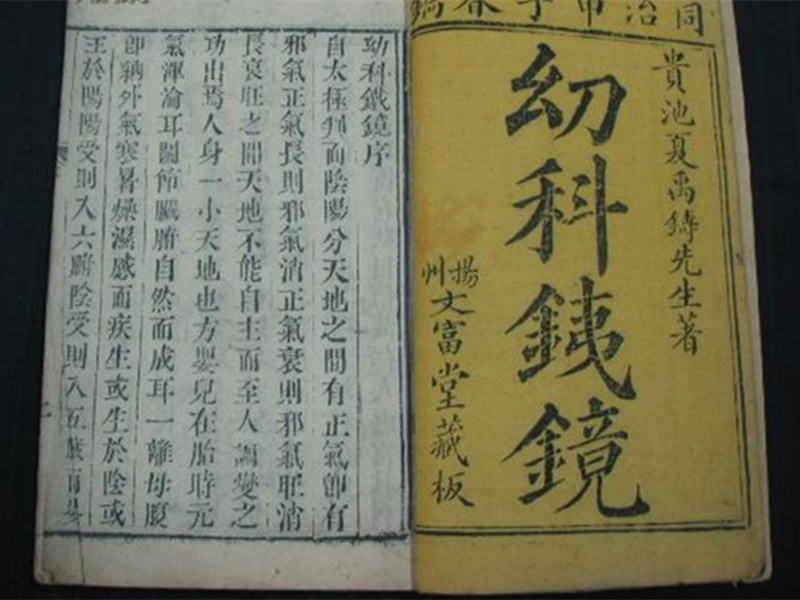 同治甲子春鐫
貴池夏禹鑄先生著
幼科銕鏡
揚州文富堂藏板
幼科鐵鏡序
自太極判而陰陽分天地之間有正氣卽有
邪氣正氣長則邪氣消正氣衰則邪氣旺消
長衰旺之間天地不能自主而至人調燮之
功出焉人身一小天地也方嬰兒在胎時元
氣渾淪耳關節臟腑自然而成耳一離母腹
卽觸外氣寒暑燥濕感而疾生或生於陰或
生於陽陽受則入六腑陰受則入五臟